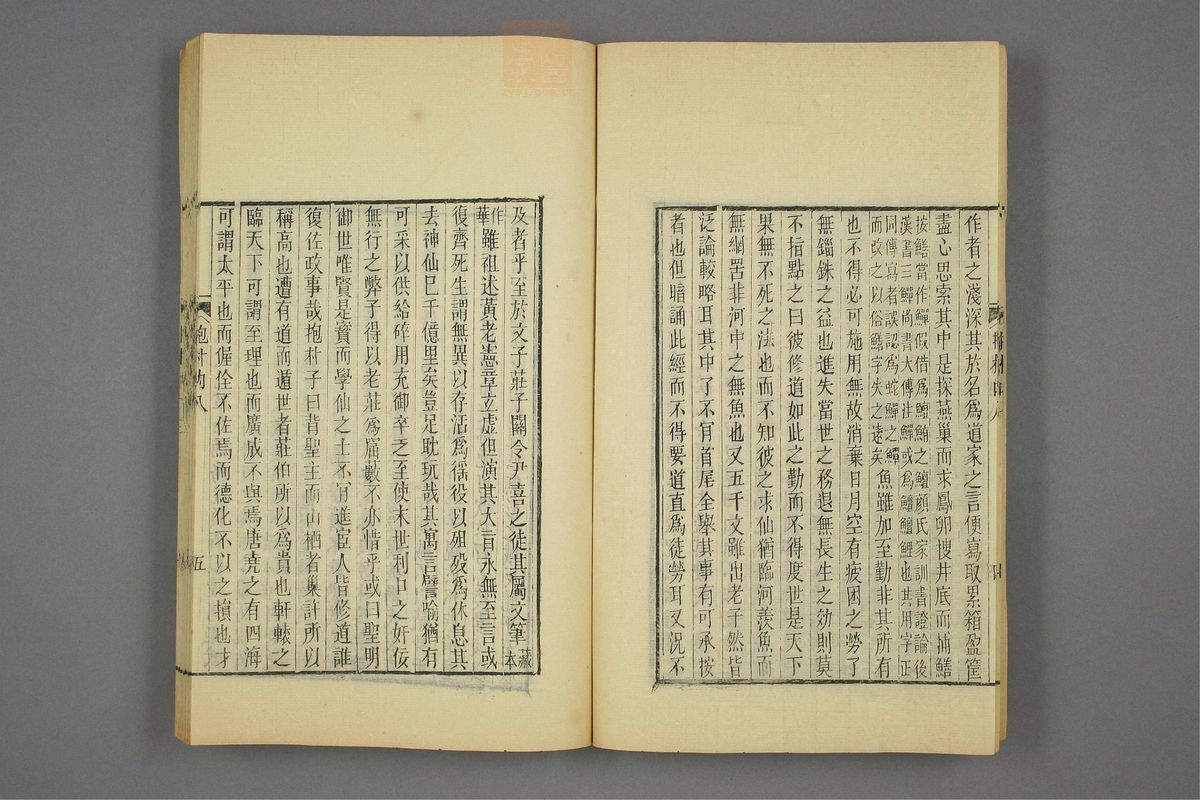 作者之淺深其於名爲道家之言便寫取累箱盈筐
盡心思索其中是探燕巢而求鳳卵搜井底而捕鱔
按鱔當作鱓假借爲鱣鮪之鱣顏氏家訓書證論後
漢書三鱓尚書大傳注鱓或爲鱣鱣鯉也其用字正
同傳寫者誤認爲蛇鱓之鱓
而改之以俗鱔字失之遠矣
魚雖加至勤非其所有
也不得必可施用無故消棄日月空有疲困之勞了
無錙銖之益也進失當世之務退無長生之效則莫
不指點之曰彼修道如此之勤而不得度世是天下
果無不死之法也而不知彼之求仙猶臨河羨魚而
無網罟非河中之無魚也又五千文雖出老子然皆
泛論較略耳其中了不肯首尾全舉其事有可承按
者也但暗誦此經而不得要道直爲徒勞耳又況不
及者乎至於文子莊子關令尹喜之徒其屬文筆藏本
作華雖祖述黃老憲章立虛但演其大旨永無至言或
復齊死生謂無異以存活爲徭役以殂歿爲休息其
去神仙已千億里矣豈足耽玩哉其寓言譬喻猶有
可采以供給碎用充御卒乏至使末世利口之奸佞
無行之弊子得以老莊爲窟藪不亦惜乎或曰聖明
御世唯賢是寶而學仙之士不肯進宦人皆修道誰
復佐政事哉抱朴子曰背聖主而山栖者巢許所以
稱高也遭有道而遁世者莊伯所以爲貴也軒轅之
臨天下可謂至理也而廣成不與焉唐堯之有四海
可謂太平也而偓佺不佐焉而德化不以之損也才
抱朴内八
五